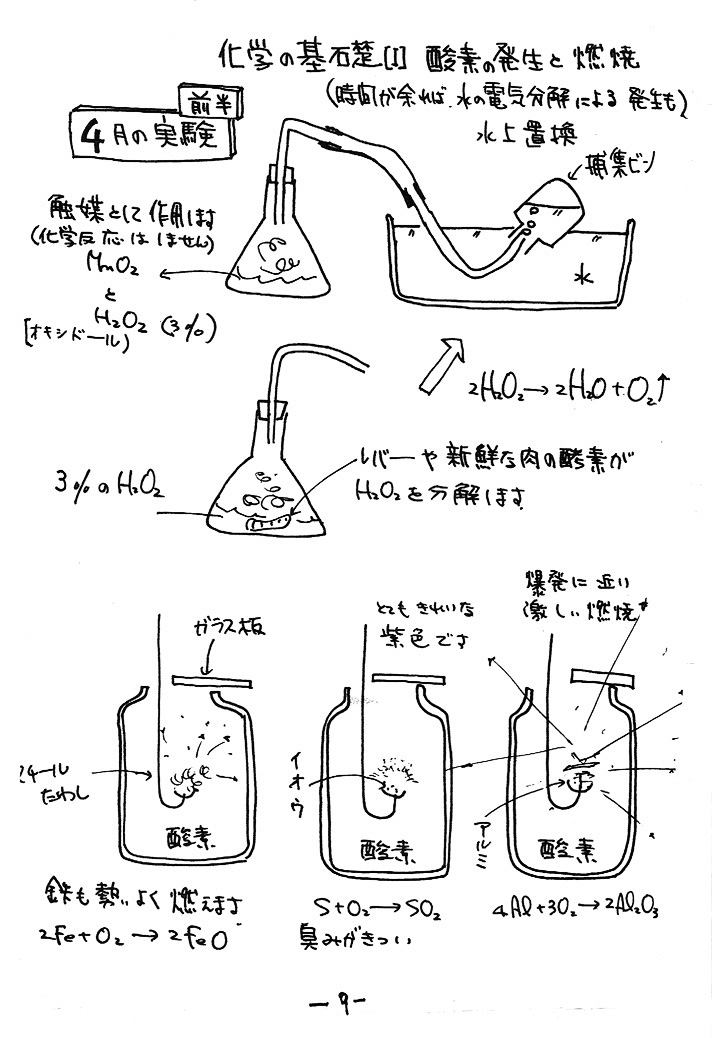 化学の基石楚[I] 酸素の発生と燃焼
(時間が余れば、水の電気分解による発生も)
前半
4月の実験
水上置換
捕集ビン
触媒として作用します
(化学反応はしません)
MnO₂
と
H₂O₂ (3%)
[オキシドール)
水
2H₂O₂→2H₂O+O₂↑
3%のH₂O₂
レバーや新鮮な肉の酵素が
H₂O₂を分解します
爆発に近い
激しい燃焼
とてもきれいな
紫色です
ガラス板
スチール
たわし
イオウ
アルミ
酸素
酸素
酸素
鉄も勢いよく燃えます
2Fe+O₂→2FeO
S+O₂→SO₂
臭みがきつい
4Al+3O₂→2Al₂O₃
-9-